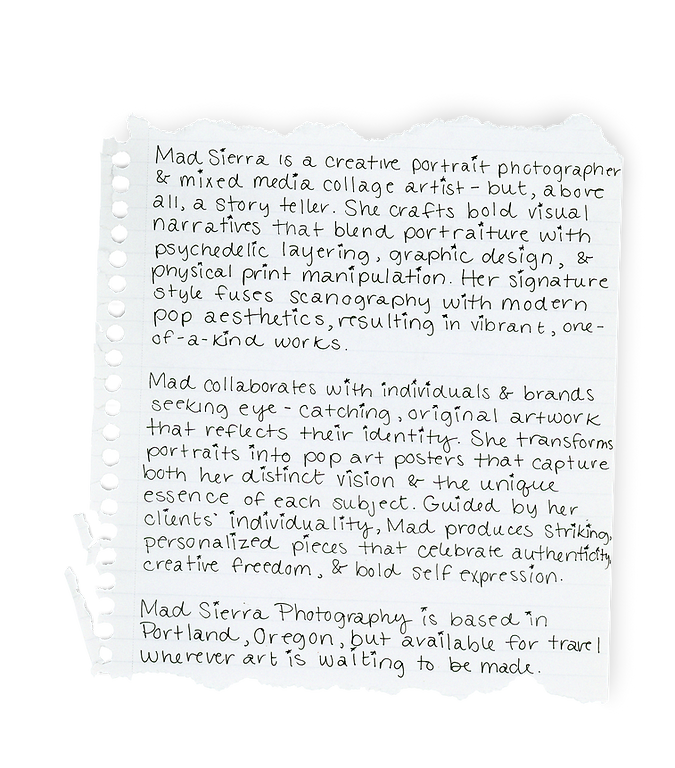 Mad Sierra is a creative portrait photographer
& mixed media collage artist - but, above
all, a story teller. She crafts bold visual
narratives that blend portraiture with
psychedelic layering, graphic design, &
physical print manipulation. Her signature
style fuses scanography with modern
pop aesthetics, resulting in vibrant, one-
of-a-kind works.
Mad collaborates with individuals & brands
seeking eye-catching, original artwork
that reflects their identity. She transforms
portraits into pop art posters that capture
both her distinct vision & the unique
essence of each subject. Guided by her
clients' individuality, Mad produces striking,
personalized pieces that celebrate authenticity,
creative freedom, & bold self expression.
Mad Sierra Photography is based in
Portland, Oregon, but available for travel
wherever art is waiting to be made.